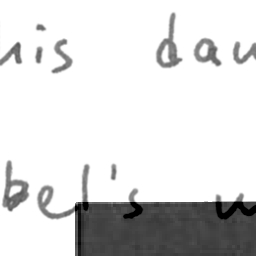 his dau
bel's w